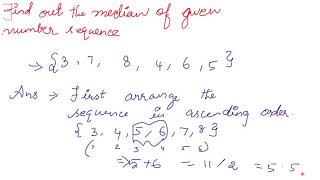 Find out the median of given
number sequence
→ {3, 7, 8, 4, 6, 5}
Ans → First arrange the
sequence in ascending order.
{3, 4, 5, 6, 7, 8}
1 2 3 4 5 6
⇒ 5+6 = 11/2 = 5.5